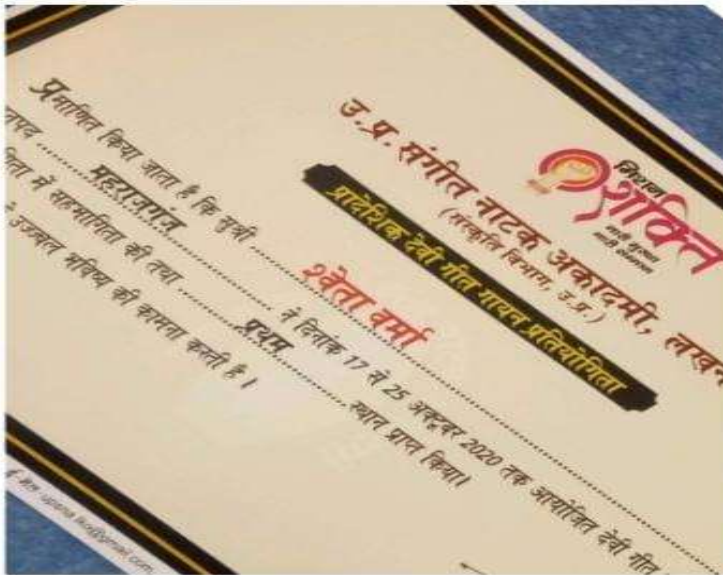 मिशन
शक्ति
नारी सुरक्षा
नारी सम्मान
उ.प्र. संगीत नाटक अकादमी,
(संस्कृति विभाग, उ.प्र.)
प्रादेशिक देवी गीत गायन प्रतियोगिता
प्रमाणित किया जाता है कि सुश्री .......... श्वेता वर्मा ..........
.......... महराजगंज .......... ने दिनांक 17 से 25 अक्टूबर 2020 तक आयोजित देवी गीत
में सहभागिता की तथा .......... प्रथम .......... स्थान प्राप्त किया।
उज्ज्वल भविष्य की कामना करती है।
ई-मेल